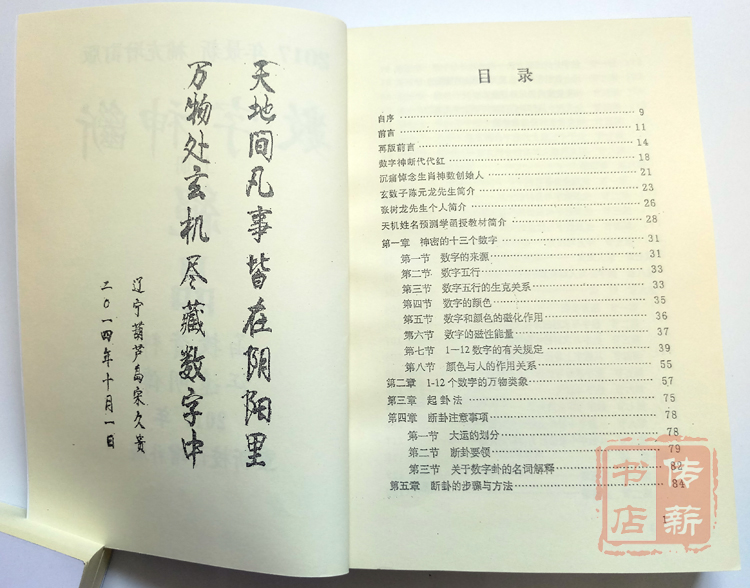 天地间凡事皆在阴阳里
万物处玄机尽藏数字中
辽宁葫芦岛宋久贵
二〇一四年十月一日
目 录
自序 9
前言 11
再版前言 14
数字神断代代红 18
沉痛悼念生肖神数创始人 21
玄数子陈元龙先生简介 23
张树龙先生个人简介 26
天机姓名预测学函授教材简介 28
第一章 神密的十三个数字 31
第一节 数字的来源 31
第二节 数字五行 33
第三节 数字五行的生克关系 33
第四节 数字的颜色 35
第五节 数字和颜色的磁化作用 36
第六节 数字的磁性能量 37
第七节 1—12数字的有关规定 39
第八节 颜色与人的作用关系 55
第二章 1-12个数字的万物类象 57
第三章 起卦法 75
第四章 断卦注意事项 78
第一节 大运的划分 78
第二节 断卦要领 79
第三节 关于数字卦的名词解释 82
第五章 断卦的步骤与方法 84
1
传薪
书店